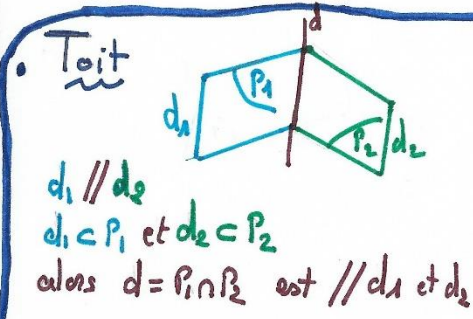 Toit
d
P1
d1
P2
d2
d1 // d2
d1 ⊂ P1 et d2 ⊂ P2
alors d = P1 ∩ P2 est // d1 et d2